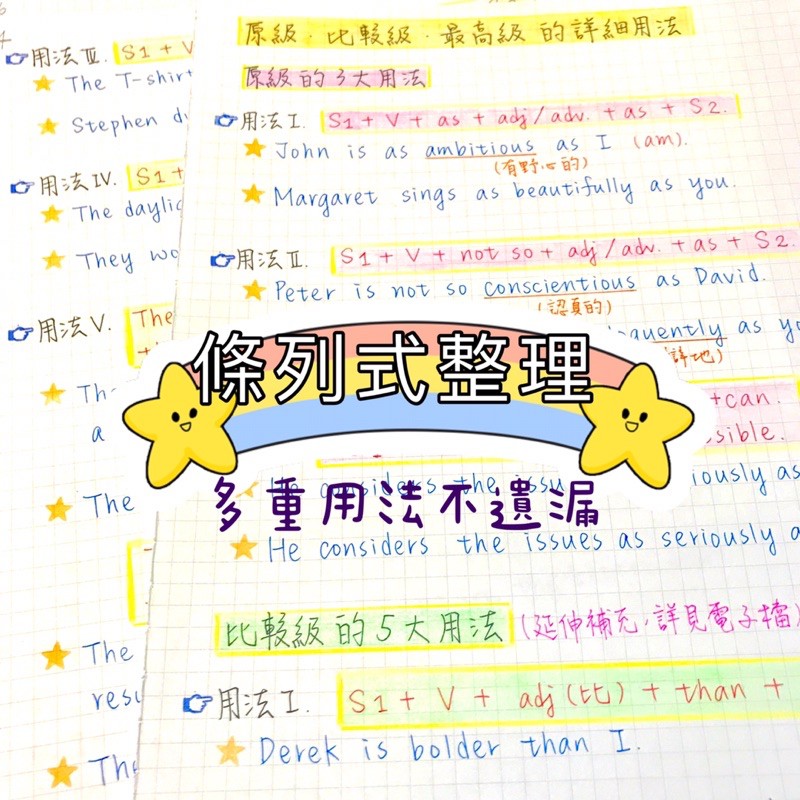 用法Ⅲ. S1 + V
The T-shirt
Stephen
用法Ⅳ. S1 +
The
They
用法Ⅴ. The
a
The
The
原級．比較級．最高級 的詳細用法
原級的3大用法
用法Ⅰ. S1 + V + as + adj/adv. + as + S2.
John is as ambitious as I (am).
(有野心的)
Margaret sings as beautifully as you.
用法Ⅱ. S1 + V + not so + adj/adv. + as + S2.
Peter is not so conscientious as David.
(認真的)
as
+can.
條列式整理
the
as
多重用法不遺漏
He considers the issues as seriously
比較級的5大用法 (延伸補充，詳見電子檔)
用法Ⅰ. S1 + V + adj(比) + than +
Derek is bolder than I.